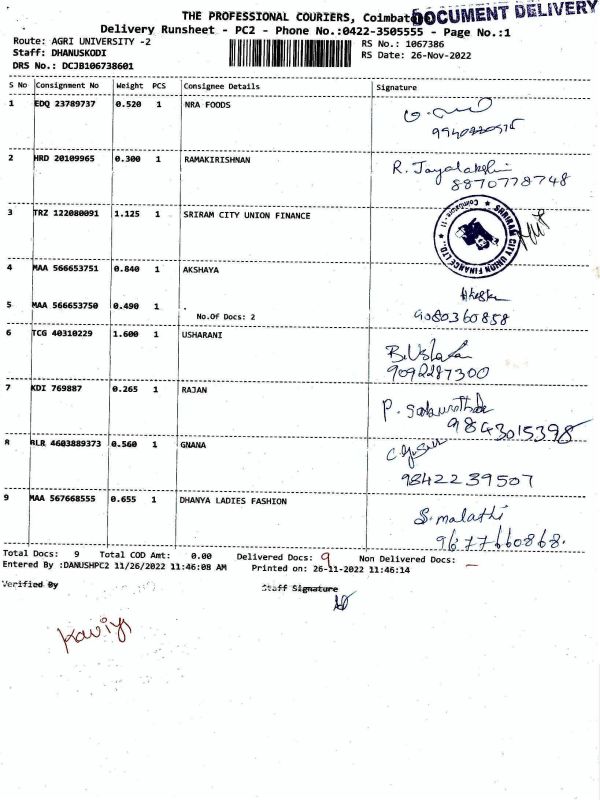 THE PROFESSIONAL COURIERS, Coimbato
DOCUMENT DELIVERY
Delivery Runsheet - PC2 - Phone No.:0422-3505555 - Page No.:1
Route: AGRI UNIVERSITY -2 RS No.: 1067386
Staff: DHANUSKODI RS Date: 26-Nov-2022
DRS No.: DCJB106738601
S No Consignment No Weight PCS Consignee Details Signature
1 EDQ 23789737 0.520 1 NRA FOODS
2 HRD 20109965 0.300 1 RAMAKIRISHNAN R. Jayalakshmi
8870778748
3 TRZ 122080091 1.125 1 SRIRAM CITY UNION FINANCE
SHRIRAM CITY UNION FINANCE LTD., Coimbatore - 11
4 MAA 566653751 0.840 1 AKSHAYA
5 MAA 566653750 0.490 1 .
No.Of Docs: 2
9080360858
6 TCG 40310229 1.600 1 USHARANI
9092287300
7 KDI 769887 0.265 1 RAJAN
9843015398
8 RLR 4603889373 0.560 1 GNANA
9842239507
9 MAA 567668555 0.655 1 DHANYA LADIES FASHION S. malathi
9677660868.
Total Docs: 9 Total COD Amt: 0.00 Delivered Docs: 9 Non Delivered Docs: —
Entered By :DANUSHPC2 11/26/2022 11:46:08 AM Printed on: 26-11-2022 11:46:14
Verified By Staff Signature
Kaviya